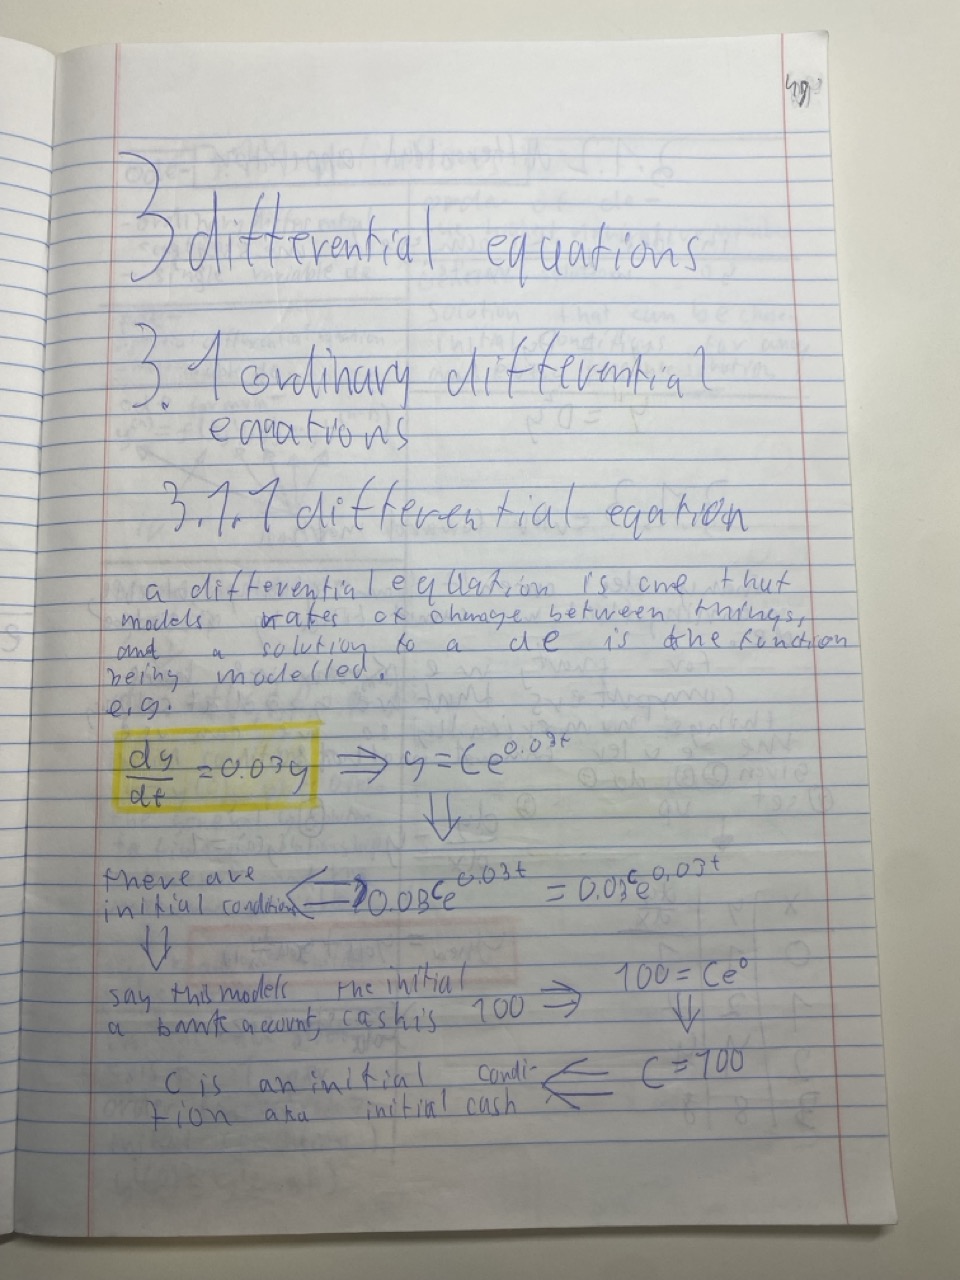 49
3 differential equations
3.1 ordinary differential
equations
3.1.1 differential eqation
a differential equation is one that
models rates of change between things,
and a solution to a de is the function
being modelled.
e.g.
dy/dt = 0.03y ⟹ y = Ce^0.03t
⇓
there are
initial condition ⟸ 0.03Ce^0.03t = 0.03Ce^0.03t
⇓
say this models the initial
a bank account, cash is 100 ⟹ 100 = Ce^0
⇓
C is an initial condi- ⟸ C = 100
tion aka initial cash